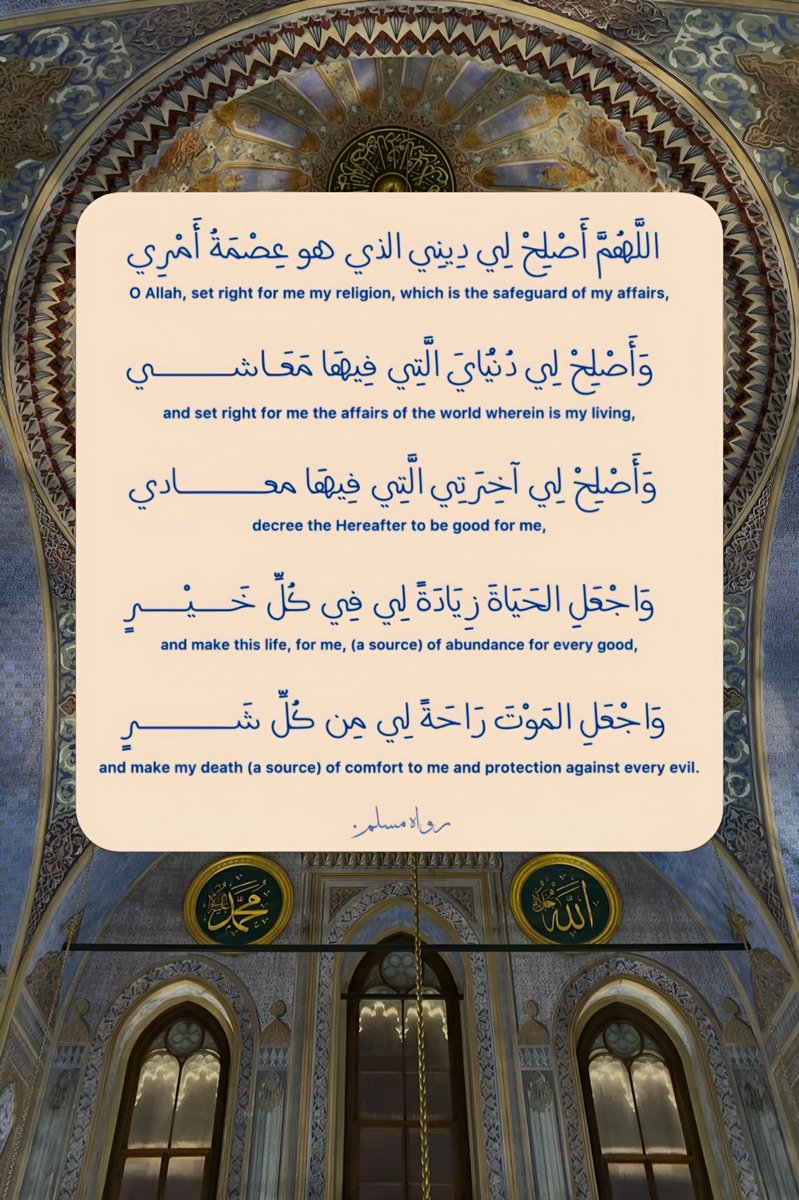 اللَّهُمَّ أَصْلِحْ لِي دِينِي الذي هو عِصْمَةُ أَمْرِي
O Allah, set right for me my religion, which is the safeguard of my affairs,
وَأَصْلِحْ لِي دُنْيَايَ الَّتِي فِيهَا مَعَـاشـــــــــي
and set right for me the affairs of the world wherein is my living,
وَأَصْلِحْ لِي آخِرَتِي الَّتِي فِيهَا معـــــــــادي
decree the Hereafter to be good for me,
وَاجْعَلِ الحَيَاةَ زِيَادَةً لِي فِي كُلِّ خَـــيْـــرٍ
and make this life, for me, (a source) of abundance for every good,
وَاجْعَلِ المَوْتَ رَاحَةً لِي مِن كُلِّ شَـــــــــرٍ
and make my death (a source) of comfort to me and protection against every evil.
رواه مسلم.
محمد
الله